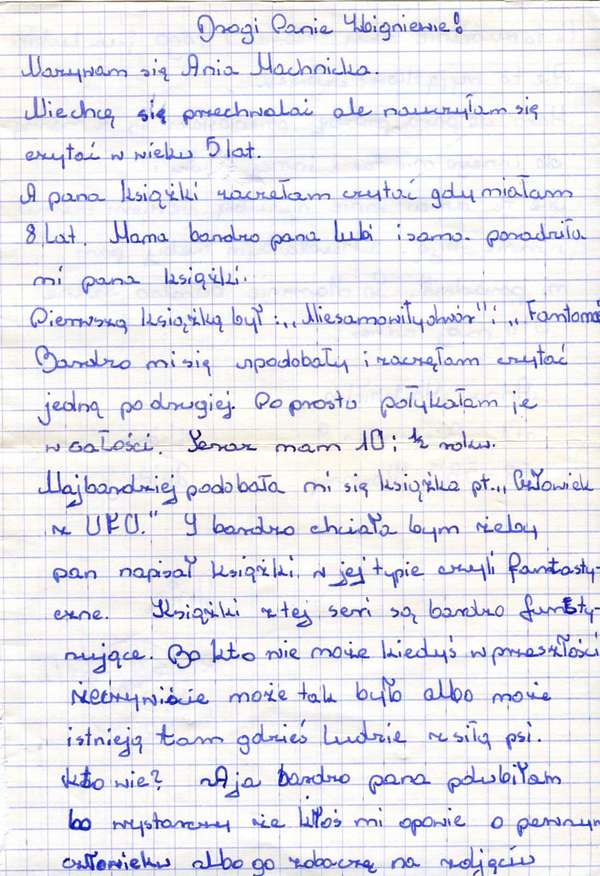 Drogi Panie Zbigniewie!
Nazywam się Ania Machnicka.
Niechcę się przechwalać ale nauczyłam się
czytać w wieku 5 lat.
A pana książki zaczełam czytać gdy miałam
8 Lat. Mama bardzo pana lubi i sama poradziła
mi pana książki.
Pierwszą książką był: „Niesamowity dwór" i „Fantomas
Bardzo mi się spodobały i zaczęłam czytać
jedną po drugiej. Poprostu połykałam je
w całości. Teraz mam 10 i ½ roku.
Najbardziej podobała mi się książka pt. „Człowiek
z UFO." I bardzo chciała bym żeby
pan napisał książki w jej typie czyli fantasty-
czne. Książki z tej serii są bardzo
nujące. Bo kto nie może kiedyś w przeszłości
rzeczywiście może tak było albo może
istnieją tam gdzieś ludzie z siłą psi.
kto wie? A ja bardzo pana polubiłam
bo wystarczy że ktoś mi opowie o pewnym
człowieku albo go zobaczą na zdjęciu